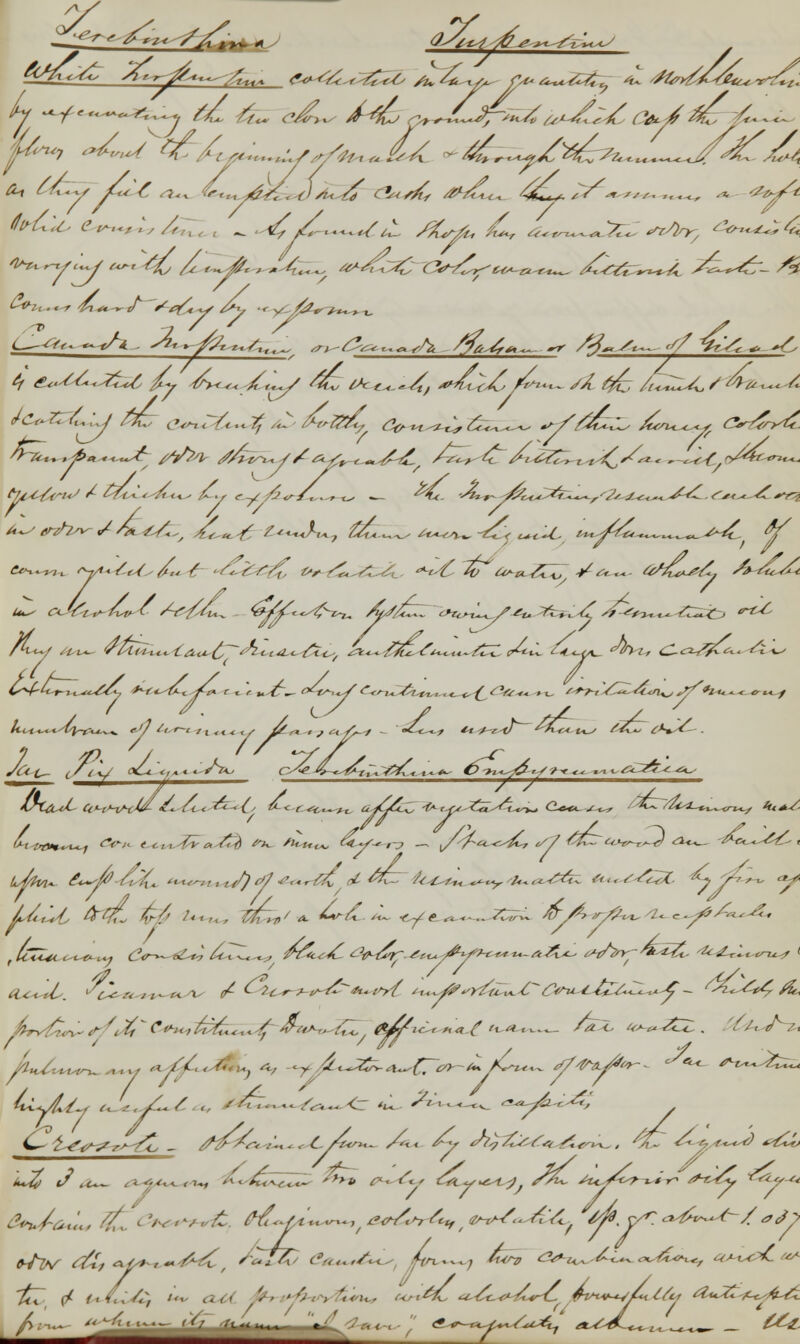 Terebinthina Turpentine
White Turpentine collected in large quantity in North Carolin
by excavating the tree close to the ground, into which cup the juice
flows about the beginning of march & through the summer. The hole
as they fill are emptied into casks where they it assumes a soft
solid consistence - As found in shops has aromatic odor, consiste
varying with temperature, white color, warm bitterish taste - B
comes hard & dry by exposure
Canada Turpentine, or Canada Balsam or Balm of Gilead
is collected by breaking the vesicles, which form on the trunk & branch
& catching the contents in bottles, consistence of thin honey, colorle
transparent, odor strong & agreeable, taste bitterish & acrid, become
yellow & thicker by exposure - The Turpentines resemble each ot
in odor & taste, heat renders them more liquid, inflammable, Of
course yield but little volatile oil to water, & are wholly soluble
in alcohol & ether - Effects on system owing entirely to essential oil
They are stimulant, diuretic, anthelmintic & in large doses Cathartic
Externally rubefacient - Long continued cause irritation of mucous
membrane of urinary passages - Less used than the oil.
Tar Pix Liquida Terebinthina Empyreumatica
Dead wood selected, because after vegetation ceases the resinous mat
becomes concentrated on inner layers - Stacks of the wood are built
upon cup like mounds of earth, & the resinous matter melted by fire ap
plied to the top runs thro' a hole in excavation to proper receptacles
, tenacious consistence, black color, empyreumatic odor, taste resinous
acid. Picamar & Creosote most important constituents - Yields
portion of its constituents to water, officinal name tar water. Used
pulmonary affections, as expectorant. or in form of vapor - Tar ointme
highly useful as stimulant in Tinea capitis
Creosote - Obtained from tar by distillation. The liquid div
into 3 an aqueous between two oily layers, The inferior oily laye
contains the Creosote. Oleaginous, colorless, volatile, sp. gr. about 1.037
odor disagreeable, taste caustic, forms two combinations with w
ter, & unites in all proportions with alcohol, powerfully antisepti
from whence its name "I save", coagulates albumen - Us